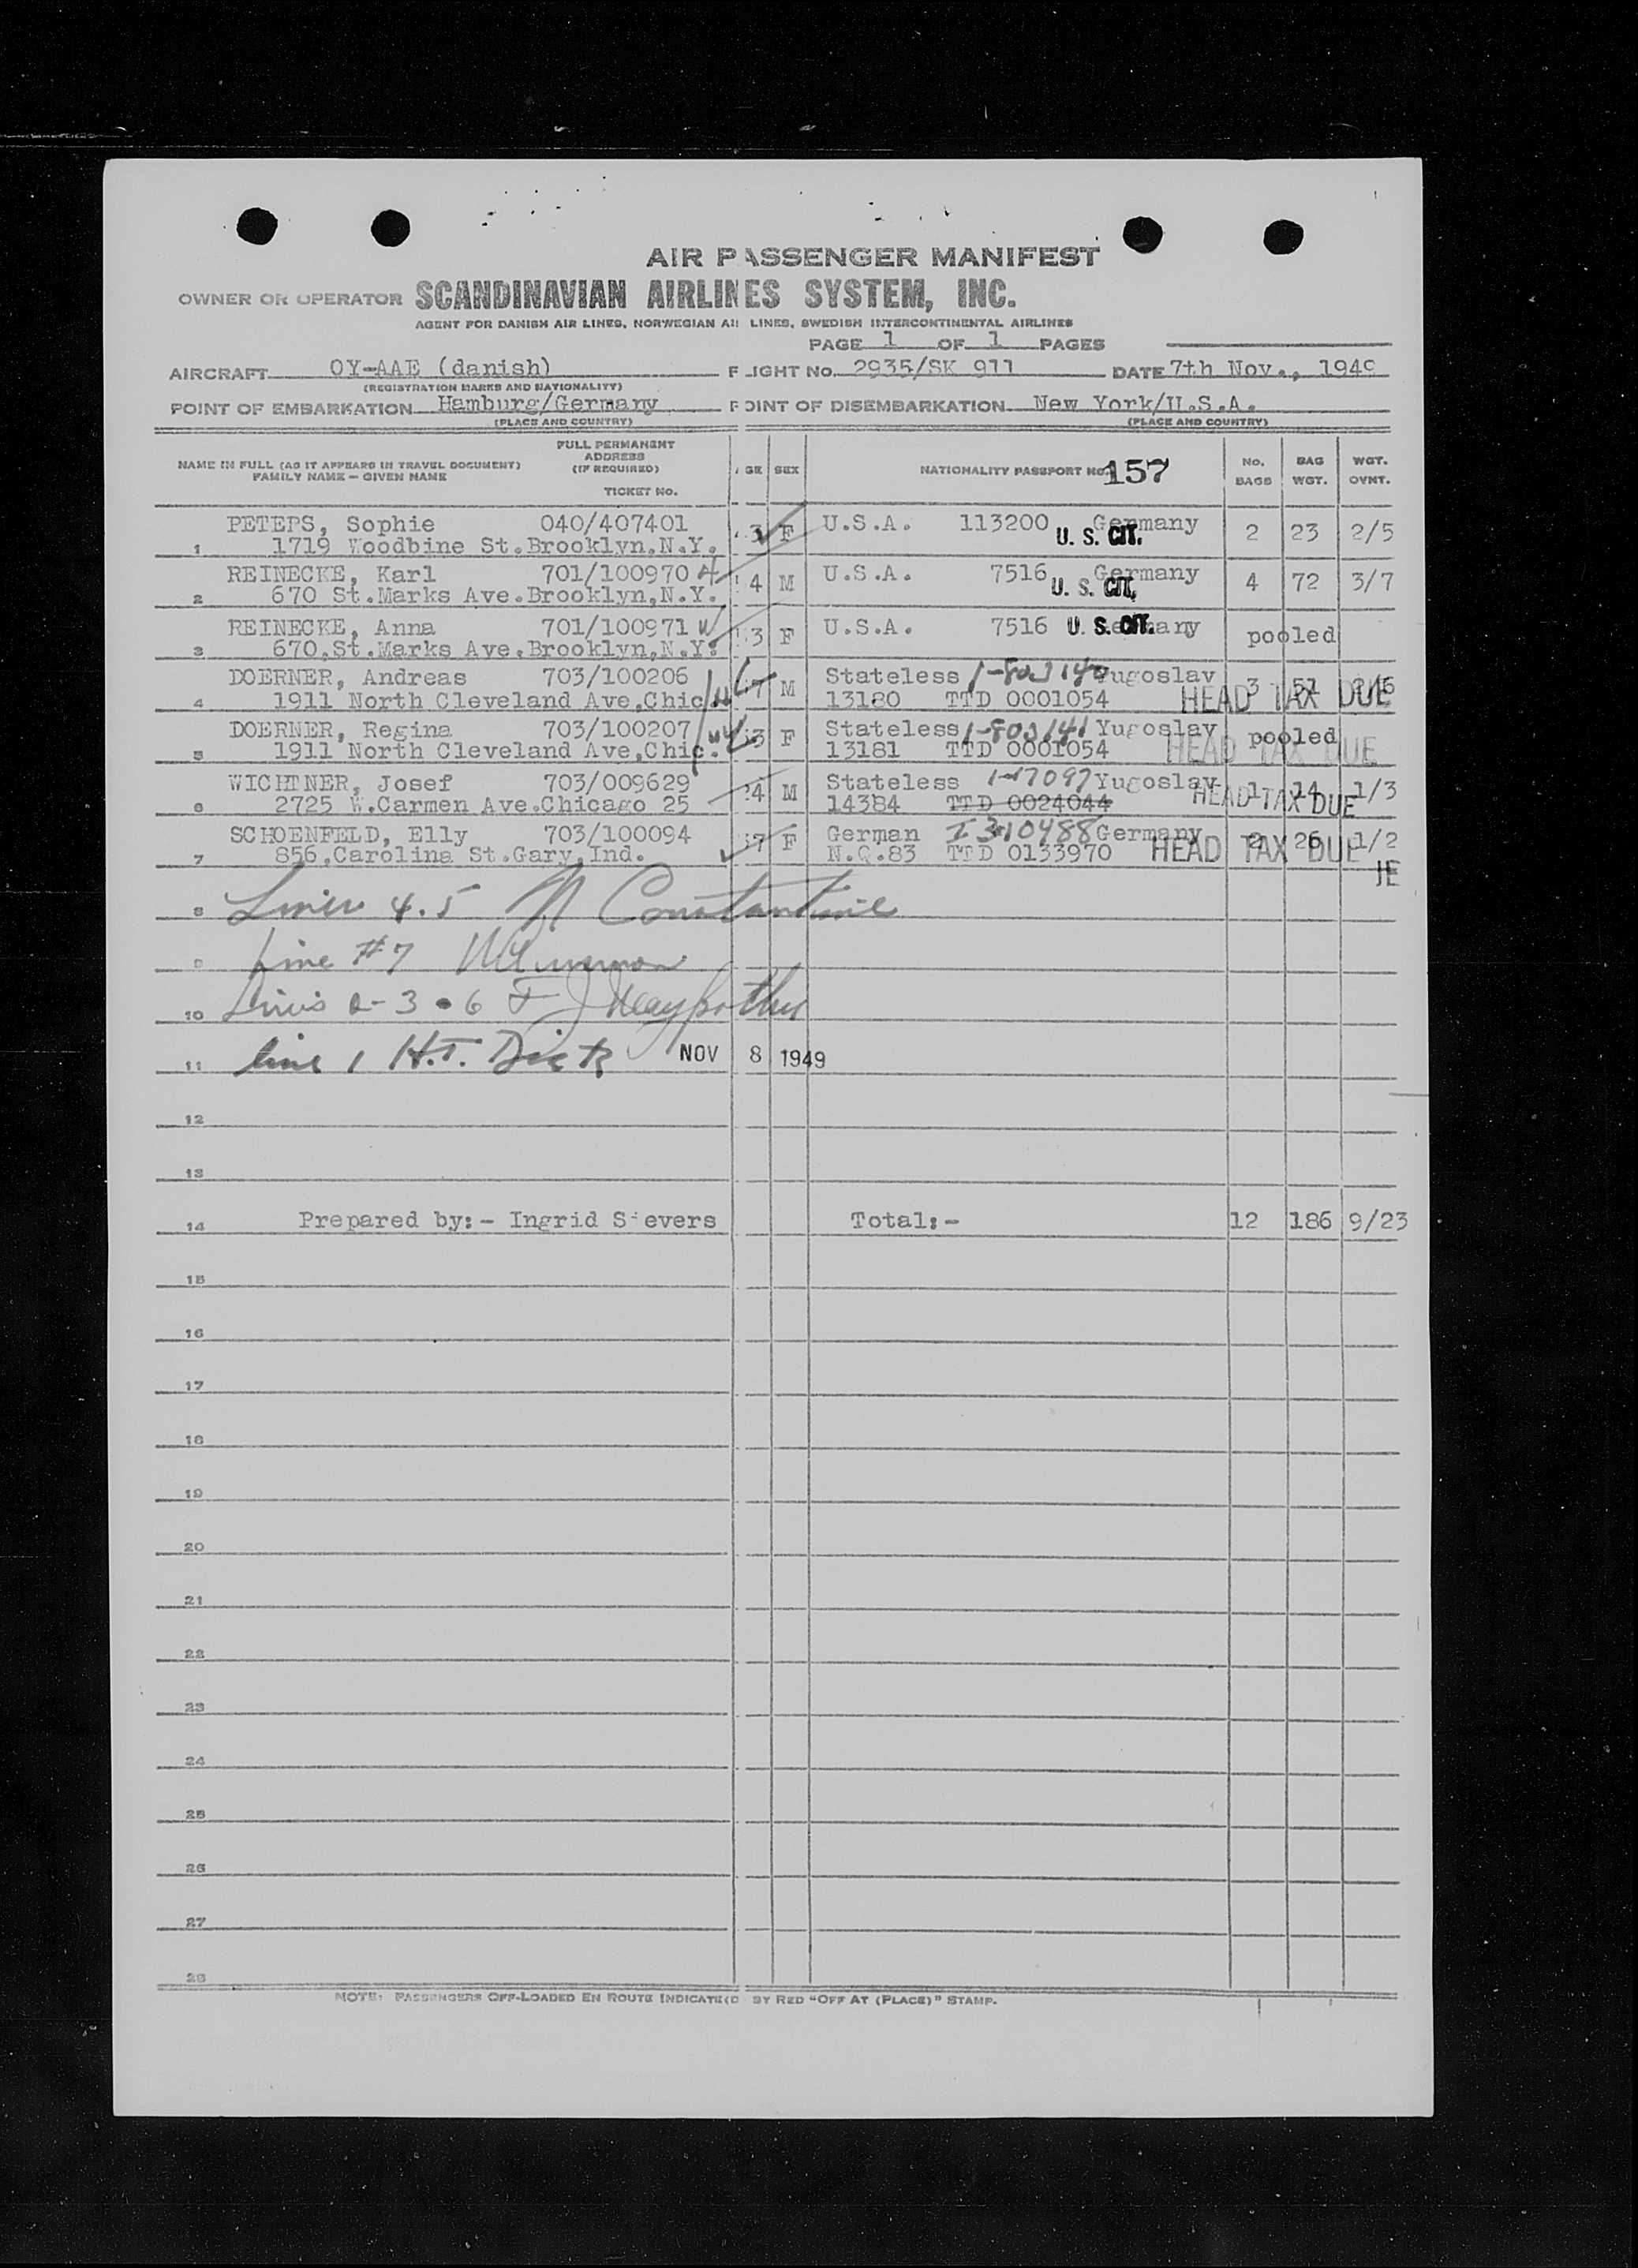 AIR PASSENGER MANIFEST
OWNER OR OPERATOR SCANDINAVIAN AIRLINES SYSTEM, INC.
AGENT FOR DANISH AIR LINES, NORWEGIAN AIR LINES, SWEDISH INTERCONTINENTAL AIRLINES
PAGE 1 OF 1 PAGES
AIRCRAFT OY-AAE (danish) FLIGHT No. 2935/SK 911 DATE 7th Nov., 1949
(REGISTRATION MARKS AND NATIONALITY)
POINT OF EMBARKATION Hamburg/Germany POINT OF DISEMBARKATION New York/U.S.A.
(PLACE AND COUNTRY) (PLACE AND COUNTRY)
NAME IN FULL (AS IT APPEARS IN TRAVEL DOCUMENT) FAMILY NAME — GIVEN NAME FULL PERMANENT ADDRESS (IF REQUIRED) TICKET NO. AGE SEX NATIONALITY PASSPORT NO. 157 No. BAGS BAG WGT. WGT. OVNT.
PETERS, Sophie 040/407401 3 F U.S.A. 113200 Germany 2 23 2/5
1 1719 Woodbine St.Brooklyn,N.Y. U. S. CIT.
REINECKE, Karl 701/100970 4 M U.S.A. 7516 Germany 4 72 3/7
2 670 St.Marks Ave.Brooklyn,N.Y. U. S. CIT.
REINECKE, Anna 701/100971 3 F U.S.A. 7516 Germany U. S. CIT. pooled
3 670,St.Marks Ave,Brooklyn,N.Y.
DOERNER, Andreas 703/100206 7 M Stateless Yugoslav 3 51
4 1911 North Cleveland Ave,Chic. 13180 TTD 0001054 HEAD TAX DUE
DOERNER, Regina 703/100207 3 F Stateless 1-803141 Yugoslav pooled
5 1911 North Cleveland Ave,Chic. 13181 TTD 0001054 HEAD TAX DUE
WICHTNER, Josef 703/009629 4 M Stateless Yugoslav 1 14 1/3
6 2725 W.Carmen Ave.Chicago 25 14384 TTD 0024044 HEAD TAX DUE
SCHOENFELD, Elly 703/100094 7 F German Germany 2 26 1/2
7 856,Carolina St.Gary,Ind. N.Q.83 TTD 0133970 HEAD TAX DUE
JE
8 Lines 4.5 N Constantine
9 Line #7
10 Lines 2-3-6 F J
11 line 1 H.T. NOV 8 1949
12
13
14 Prepared by:- Ingrid Sievers Total:- 12 186 9/23
15
16
17
18
19
20
21
22
23
24
25
26
27
28
NOTE: PASSENGERS OFF-LOADED EN ROUTE INDICATED BY RED "OFF AT (PLACE)" STAMP.